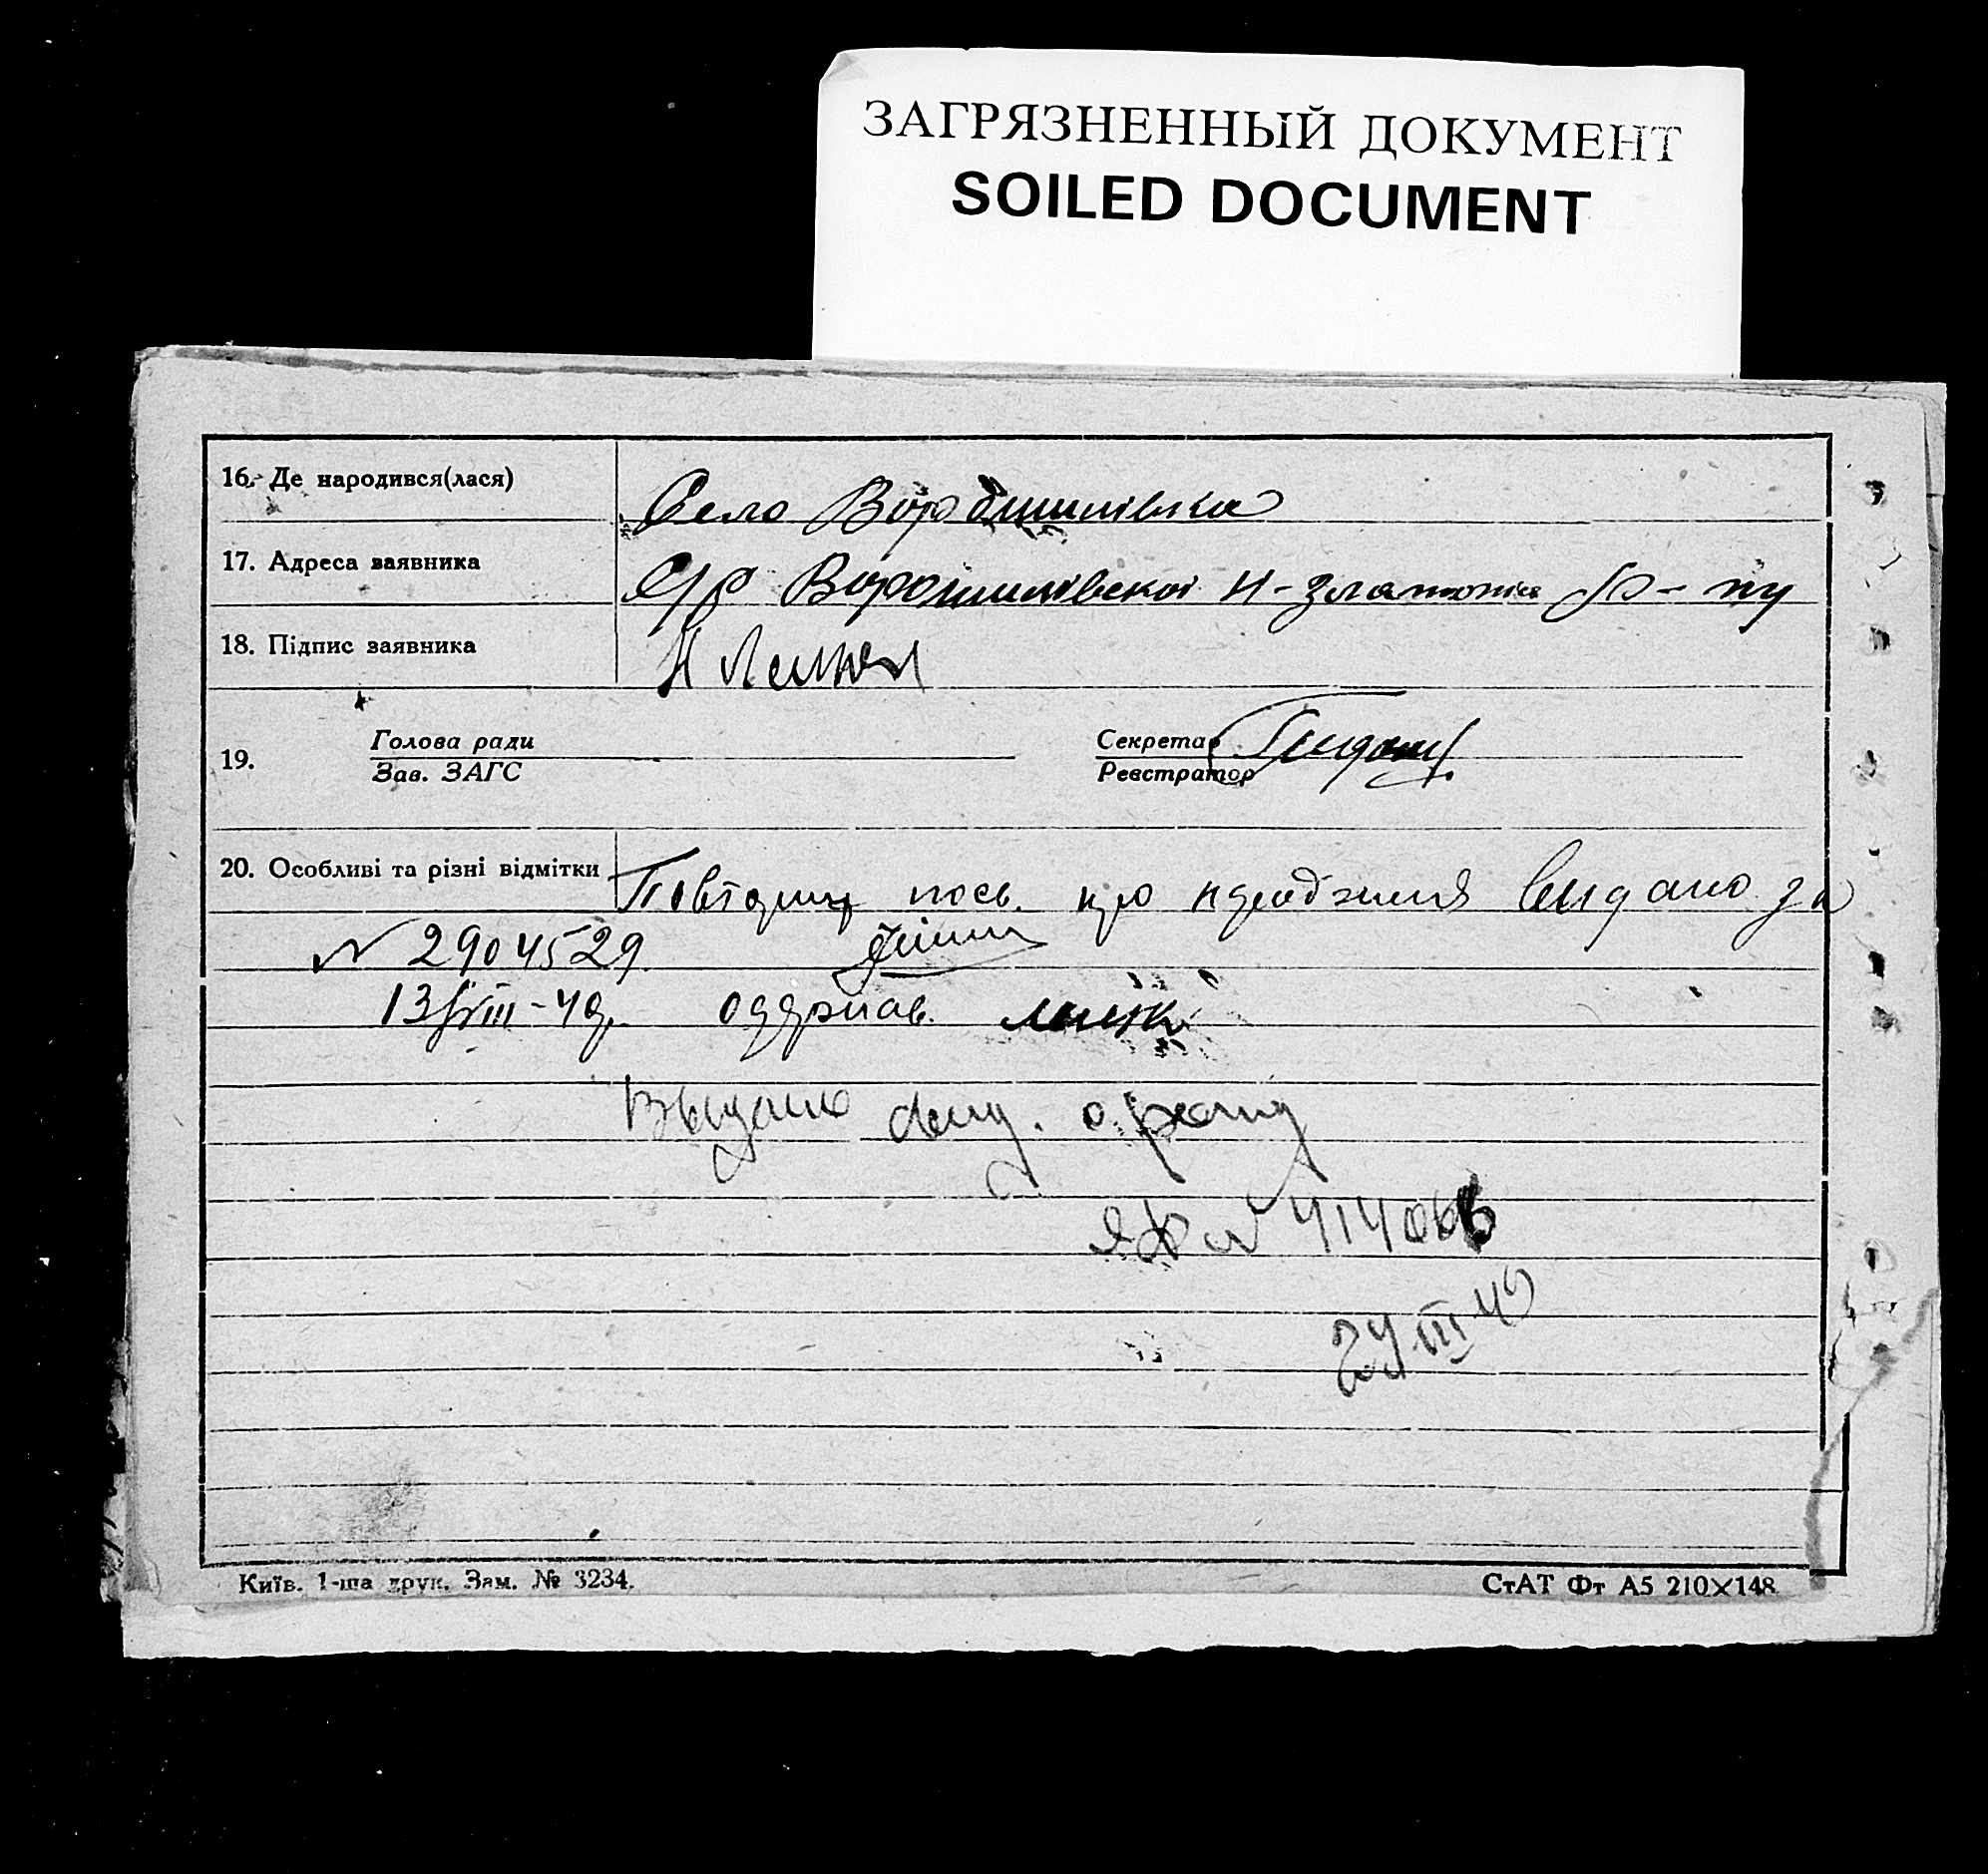 ЗАГРЯЗНЕННЫЙ ДОКУМЕНТ
SOILED DOCUMENT
16. Де народився(лася) Село Ворошилівка
17. Адреса заявника С/р Ворошилівської Н-Златопіл р-ну
18. Підпис заявника Н
19. Голова ради Секретар
Зав. ЗАГС Реєстратор
20. Особливі та різні відмітки Повторну посв. про народження видано за
№ 2904529
13/VIII-40р. одержав
Выдано свид. о рожд
ЯФ № 414066
24 III 49
Київ. 1-ша друк. Зам. № 3234. СтАТ Фт А5 210×148